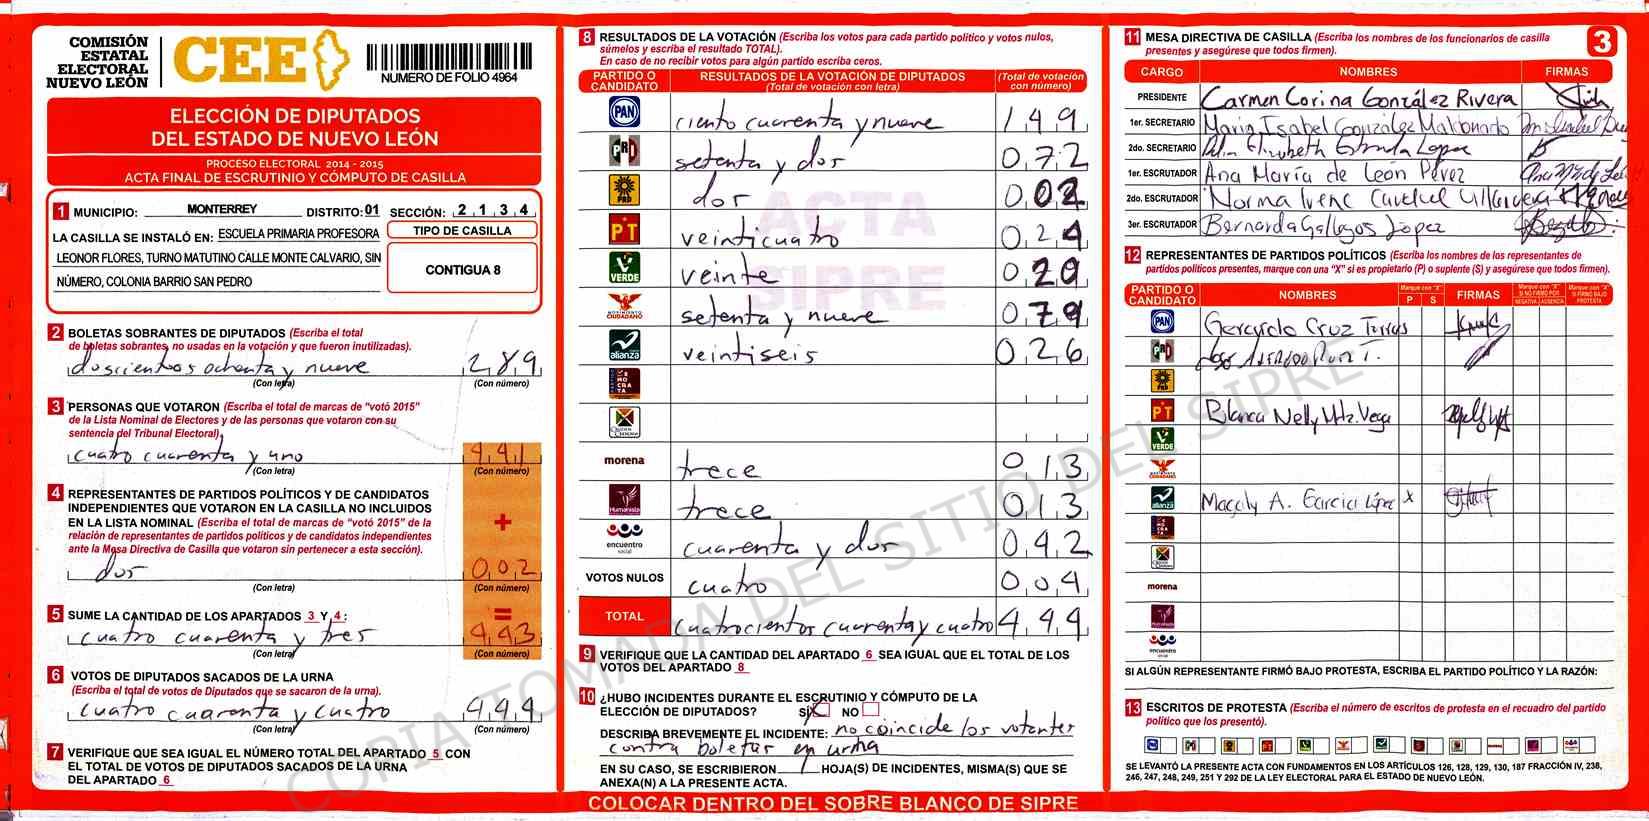 COMISIÓN
ESTATAL
ELECTORAL
NUEVO LEÓN
CEE
NUMERO DE FOLIO 4964
ELECCIÓN DE DIPUTADOS
DEL ESTADO DE NUEVO LEÓN
PROCESO ELECTORAL 2014 - 2015
ACTA FINAL DE ESCRUTINIO Y CÓMPUTO DE CASILLA
1 MUNICIPIO: MONTERREY DISTRITO: 01 SECCIÓN: 2 1 3 4
LA CASILLA SE INSTALÓ EN: ESCUELA PRIMARIA PROFESORA
LEONOR FLORES, TURNO MATUTINO CALLE MONTE CALVARIO, SIN
NÚMERO, COLONIA BARRIO SAN PEDRO
TIPO DE CASILLA
CONTIGUA 8
2 BOLETAS SOBRANTES DE DIPUTADOS (Escriba el total
de boletas sobrantes, no usadas en la votación y que fueron inutilizadas).
doscientos ochenta y nueve 289
(Con letra) (Con número)
3 PERSONAS QUE VOTARON (Escriba el total de marcas de "votó 2015"
de la Lista Nominal de Electores y de las personas que votaron con su
sentencia del Tribunal Electoral).
cuatro cuarenta y uno 441
(Con letra) (Con número)
4 REPRESENTANTES DE PARTIDOS POLÍTICOS Y DE CANDIDATOS
INDEPENDIENTES QUE VOTARON EN LA CASILLA NO INCLUIDOS
EN LA LISTA NOMINAL (Escriba el total de marcas de "votó 2015" de la
relación de representantes de partidos políticos y de candidatos independientes
ante la Mesa Directiva de Casilla que votaron sin pertenecer a esta sección).
+
dos 002
(Con letra) (Con número)
5 SUME LA CANTIDAD DE LOS APARTADOS 3 Y 4:
=
cuatro cuarenta y tres 443
(Con letra) (Con número)
6 VOTOS DE DIPUTADOS SACADOS DE LA URNA
(Escriba el total de votos de Diputados que se sacaron de la urna).
cuatro cuarenta y cuatro 444
(Con letra) (Con número)
7 VERIFIQUE QUE SEA IGUAL EL NÚMERO TOTAL DEL APARTADO 5 CON
EL TOTAL DE VOTOS DE DIPUTADOS SACADOS DE LA URNA
DEL APARTADO 6
8 RESULTADOS DE LA VOTACIÓN (Escriba los votos para cada partido político y votos nulos,
súmelos y escriba el resultado TOTAL).
En caso de no recibir votos para algún partido escriba ceros.
PARTIDO O CANDIDATO RESULTADOS DE LA VOTACIÓN DE DIPUTADOS (Total de votación con letra) (Total de votación con número)
PAN ciento cuarenta y nueve 149
PRI setenta y dos 072
PRD dos 002
PT veinticuatro 024
VERDE veinte 020
MOVIMIENTO CIUDADANO setenta y nueve 079
alianza veintiseis 026
morena trece 013
Humanista trece 013
encuentro social cuarenta y dos 042
VOTOS NULOS cuatro 004
TOTAL cuatrocientos cuarenta y cuatro 444
ACTA
SIPRE
9 VERIFIQUE QUE LA CANTIDAD DEL APARTADO 6 SEA IGUAL QUE EL TOTAL DE LOS
VOTOS DEL APARTADO 8
10 ¿HUBO INCIDENTES DURANTE EL ESCRUTINIO Y CÓMPUTO DE LA
ELECCIÓN DE DIPUTADOS? SÍ X NO
DESCRIBA BREVEMENTE EL INCIDENTE: no coincide los votantes
contra boletas en urna
EN SU CASO, SE ESCRIBIERON 1 HOJA(S) DE INCIDENTES, MISMA(S) QUE SE
ANEXA(N) A LA PRESENTE ACTA.
11 MESA DIRECTIVA DE CASILLA (Escriba los nombres de los funcionarios de casilla
presentes y asegúrese que todos firmen).
3
CARGO NOMBRES FIRMAS
PRESIDENTE Carmen Corina González Rivera
1er. SECRETARIO Maria Isabel González Maldonado
2do. SECRETARIO Elizabeth Estrada Lopez
1er. ESCRUTADOR Ana María de León Pérez
2do. ESCRUTADOR Norma Irene
3er. ESCRUTADOR Bernarda Gallegos López
12 REPRESENTANTES DE PARTIDOS POLÍTICOS (Escriba los nombres de los representantes de
partidos políticos presentes, marque con una "X" si es propietario (P) o suplente (S) y asegúrese que todos firmen).
PARTIDO O CANDIDATO NOMBRES Marque con "X" P S FIRMAS Marque con "X" SI NO FIRMÓ POR NEGATIVA AUSENCIA Marque con "X" SI FIRMÓ BAJO PROTESTA
PAN Gerardo Cruz Torres
PRI
PRD
PT Blanca Nelly Mtz. Vega
VERDE
MOVIMIENTO CIUDADANO
alianza Magaly A. Garcia López X
morena
Humanista
encuentro social
SI ALGÚN REPRESENTANTE FIRMÓ BAJO PROTESTA, ESCRIBA EL PARTIDO POLÍTICO Y LA RAZÓN:
13 ESCRITOS DE PROTESTA (Escriba el número de escritos de protesta en el recuadro del partido
político que los presentó).
SE LEVANTÓ LA PRESENTE ACTA CON FUNDAMENTOS EN LOS ARTÍCULOS 126, 128, 129, 130, 187 FRACCIÓN IV, 238,
246, 247, 248, 249, 251 Y 292 DE LA LEY ELECTORAL PARA EL ESTADO DE NUEVO LEÓN.
COLOCAR DENTRO DEL SOBRE BLANCO DE SIPRE
COPIA TOMADA DEL SITIO DEL SIPRE